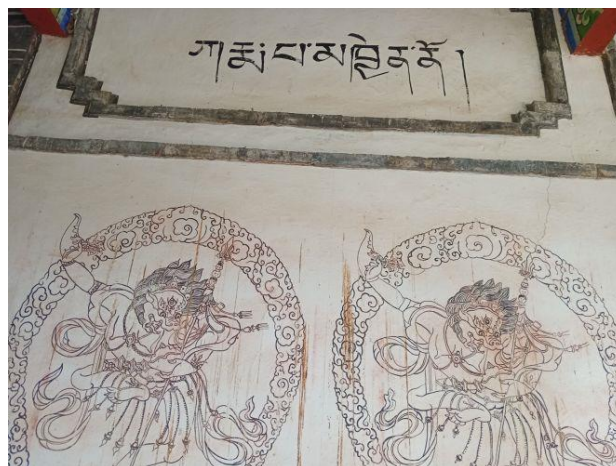 ཀརྨ་པ་མཁྱེན་ནོ།